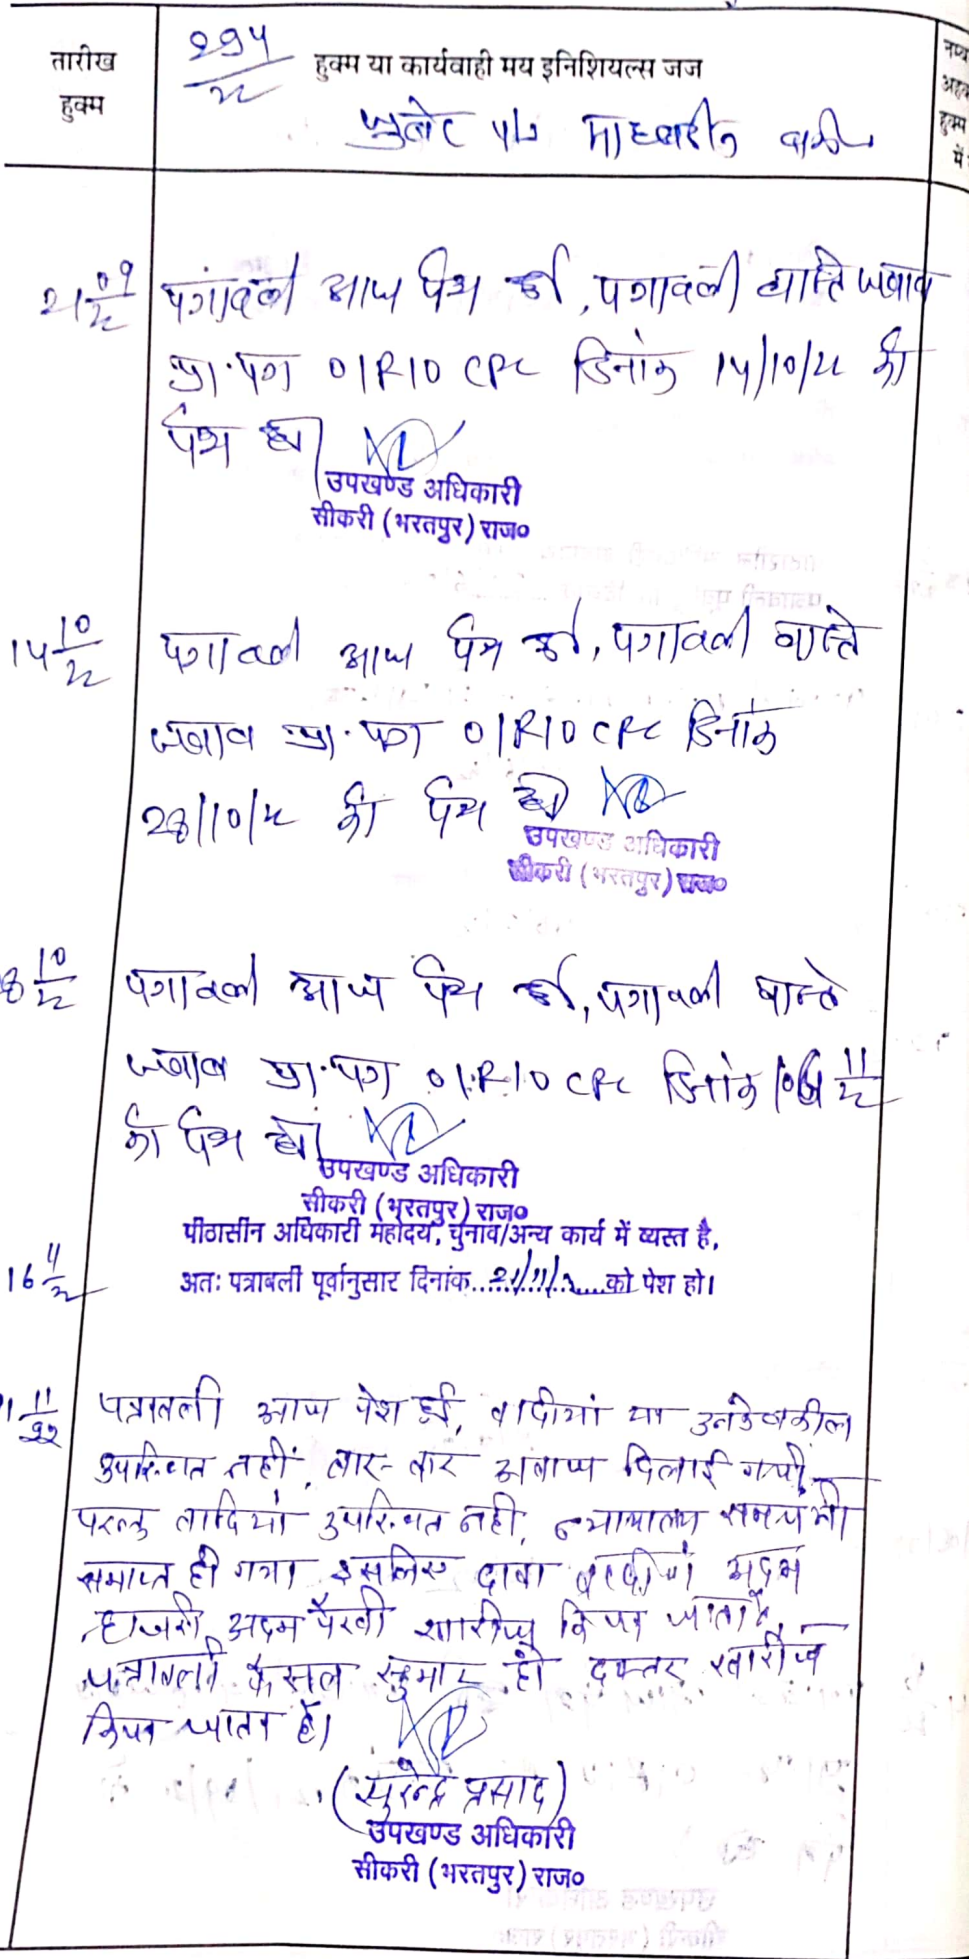 तारीख
हुक्म
294/22
हुक्म या कार्यवाही मय इनिशियल्स जज
जुबेर v/s
21 09/22 पत्रावली आज पेश हुई, पत्रावली वास्ते जवाब
प्रा.पत्र 01R10 CPC दिनांक 14/10/22 को
पेश हो।
उपखण्ड अधिकारी
सीकरी (भरतपुर) राज०
14 10/22 पत्रावली आज पेश हुई, पत्रावली वास्ते
जवाब प्रा.पत्र 01R10 CPC दिनांक
28/10/22 को पेश हो
उपखण्ड अधिकारी
सीकरी (भरतपुर) राज०
8 10/22 पत्रावली आज पेश हुई, पत्रावली वास्ते
जवाब प्रा.पत्र 01R10 CPC दिनांक 11/22
को पेश हो।
उपखण्ड अधिकारी
सीकरी (भरतपुर) राज०
पीठासीन अधिकारी महोदय, चुनाव/अन्य कार्य में व्यस्त है,
16 11/22 अतः पत्राबली पूर्वानुसार दिनांक..21/11/2....को पेश हो।
1 11/22 पत्रावली आज पेश हुई, वादीयां या उनके वकील
उपस्थित नहीं, बार-बार आवाज दिलाई गयी
परन्तु वादियां उपस्थित नही, न्यायालय समय भी
समाप्त हो गया इसलिए दावा वादीयां अदम
हाजरी अदम पैरवी खारीज किया जाता है,
पत्रावली फैसल सुमार हो दफ्तर खारीज
किया जाता है।
(सुरेन्द्र प्रसाद)
उपखण्ड अधिकारी
सीकरी (भरतपुर) राज०